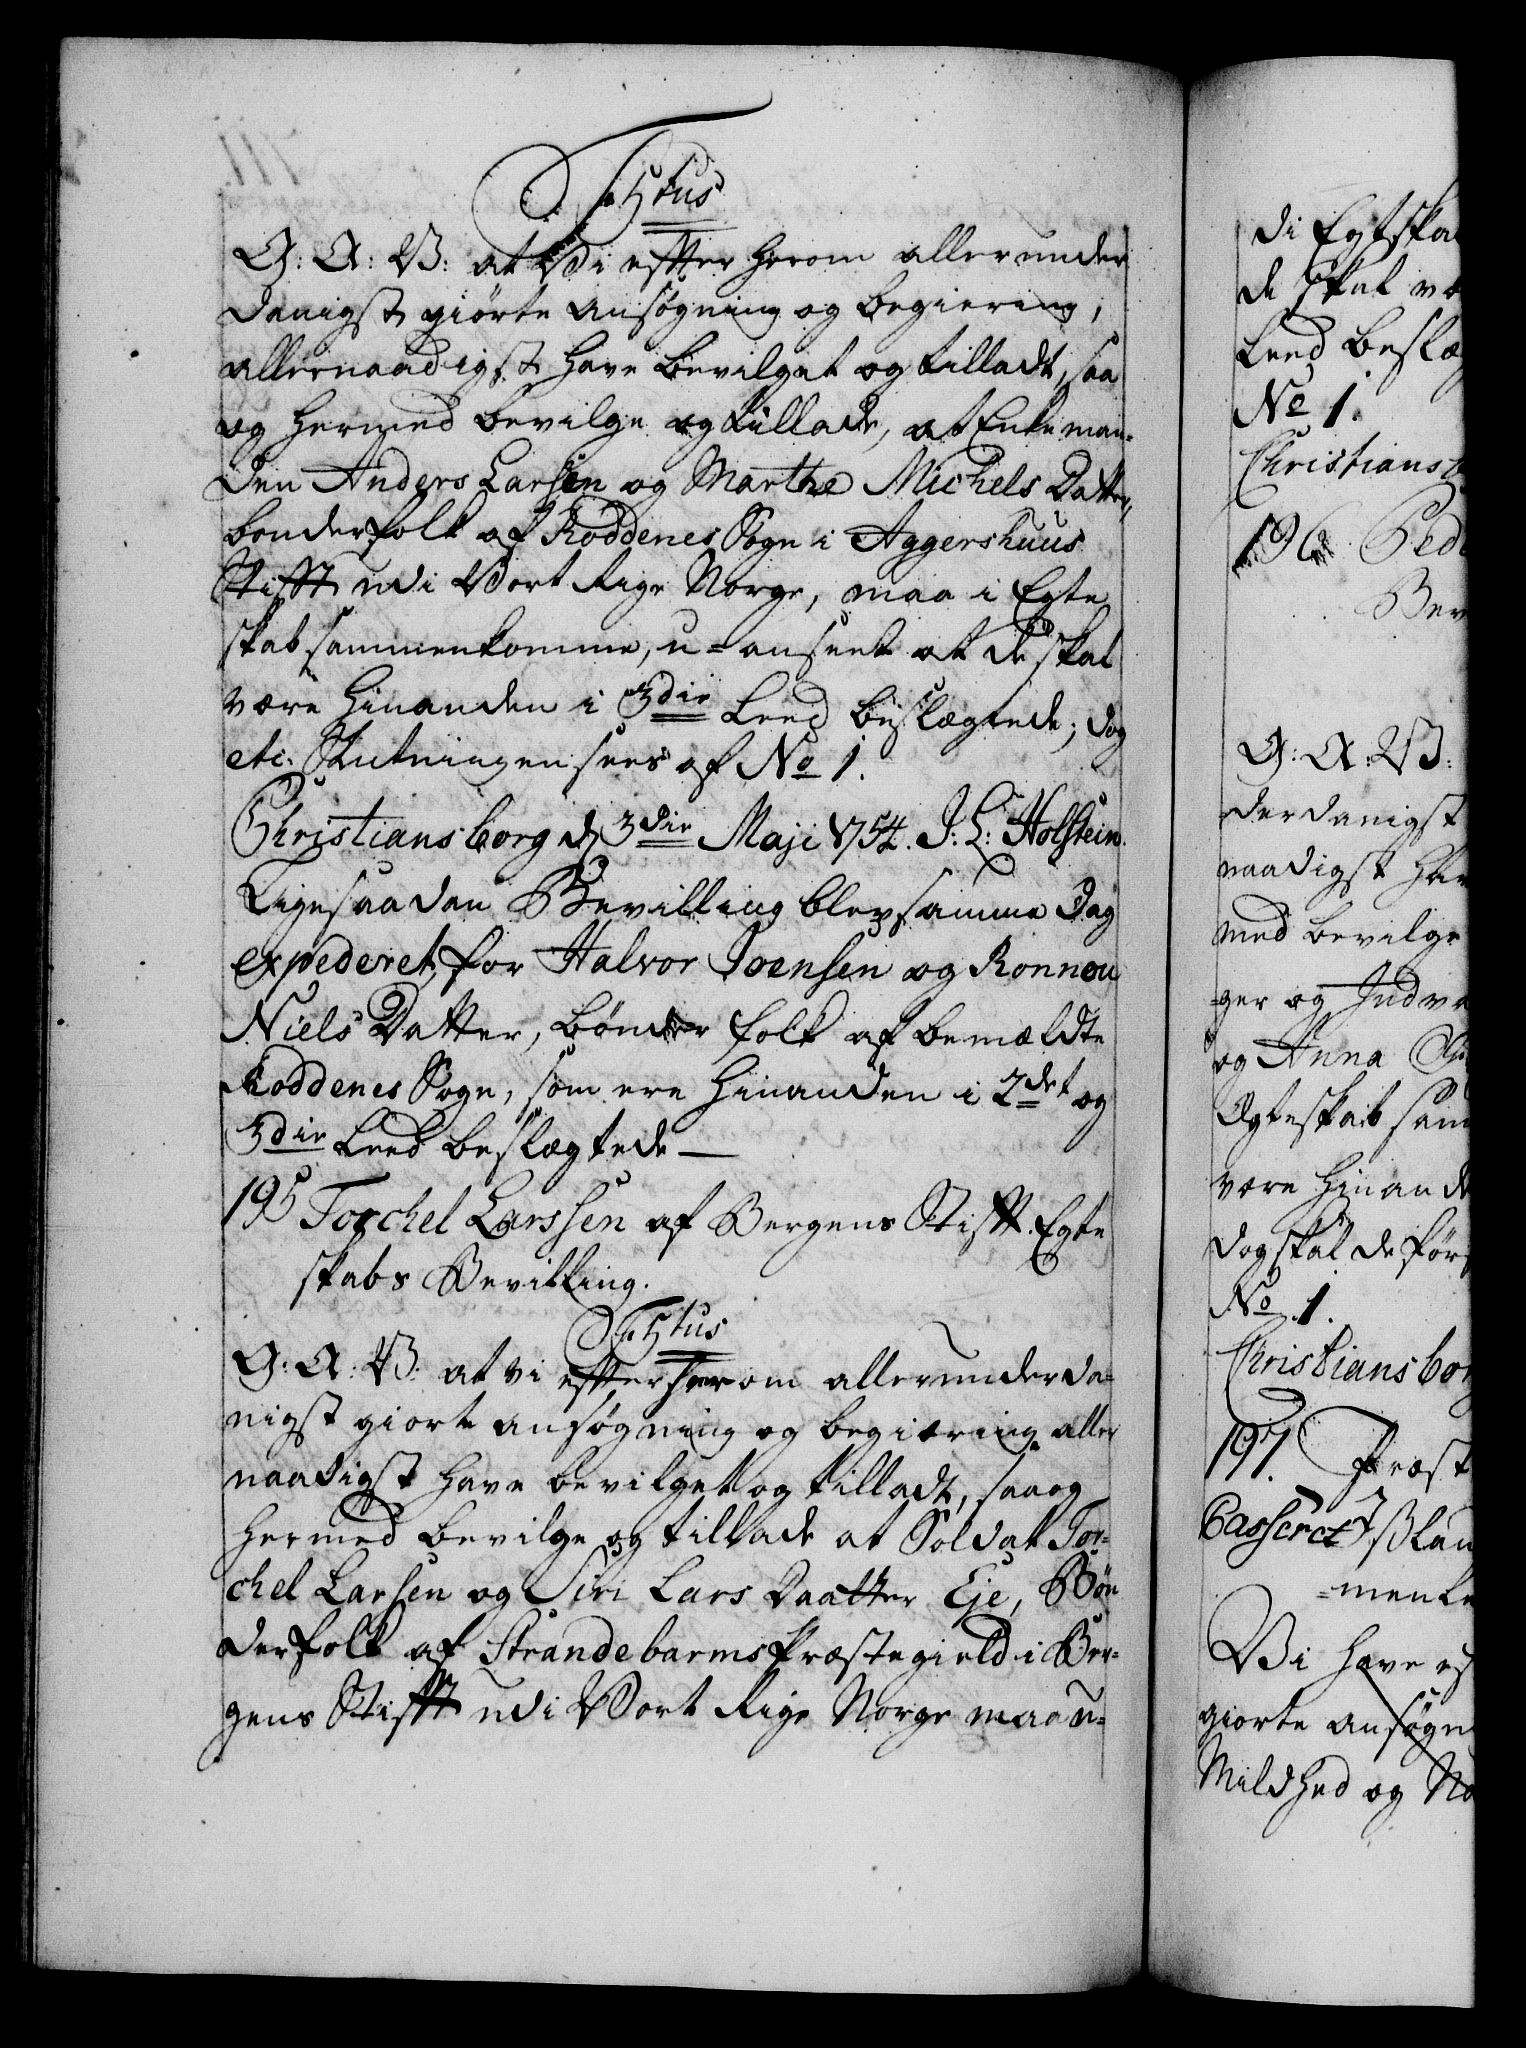 F. 5tus
G: A: V: at Vi efter herom allerunder
danigst giørte Ansøgning og begiering,
allernaadigst have bevilget og tilladt, saa
og hermed bevilge og tillade, at Enkeman-
den Anders Larsen og Marthe Michels Datter,
bønderfolk af Røddenes Sogn i Aggershuus
Stifft udi Vort Rige Norge, maa i Egte
skab sammenkomme, u-anseet at de skal
være hinanden i 3die Leed beslægtede; dog
etc. Slutningen sees af No 1.
Christiansborg d. 3die Maji 1754. J: L: Holstein.
Ligesaadan Bevilling blev samme Dag
expederet, for Halvor Joensen og Ronnou
Niels Datter, bønder folk af bemældte
Røddenes Sogn, som ere hinanden i 2det og
3die Leed beslægtede —
195 Torchel Larssen af Bergens Stifft. Egte
skabs Bevilling.
F. 5tus
G: A: V: at vi efter herom allerunderda-
nigst giorte ansøgning og begiæring aller
naadigst have bevilget og tilladt, saa og
hermed bevilge og tillade at Soldat Tor-
chel Larsen og Siri Lars Daatter Eje, Bøn
derfolk af Strandebarms Præstegield i Ber-
gens Stifft udi Vort Rige Norge maa u-
di Egtska
de skal væ
Leed beslæ
No 1.
Christiansb
196 Ped
Bev
G: A: V:
derdanigst
naadigst hav
med bevilge
-ger og Indva
og Anna
Egteskab sam
være hinande
dog skal de førs
No 1.
Christiansbor
197. Præst
Casseret
-mente
Vi have ef
giorte ansøgn
Mildhed og Na